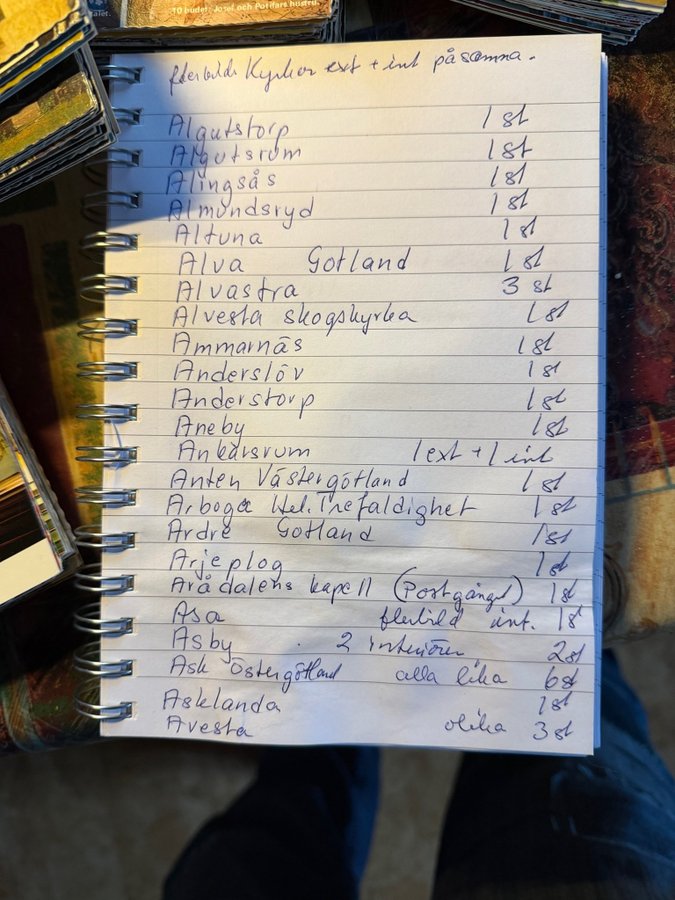 10 budet: Josef och Potifars hustru.
flerbilds Kyrkor ext + int på samma.
Algutstorp 1 st
Algutsrum 1 st
Alingsås 1 st
Almundsryd 1 st
Altuna 1 st
Alva Gotland 1 st
Alvastra 3 st
Alvesta skogskyrka 1 st
Ammarnäs 1 st
Anderslöv 1 st
Anderstorp 1 st
Aneby 1 st
Ankarsrum 1 ext + 1 int
Anten Västergötland 1 st
Arboga Hel. Trefaldighet 1 st
Ardre Gotland 1 st
Arjeplog 1 st
Arådalens kapell (Postgånget) 1 st
Asa flerbild int. 1 st
Asby 2 interiörer 2 st
Ask Östergötland alla lika 6 st
Asklanda 1 st
Avesta olika 3 st